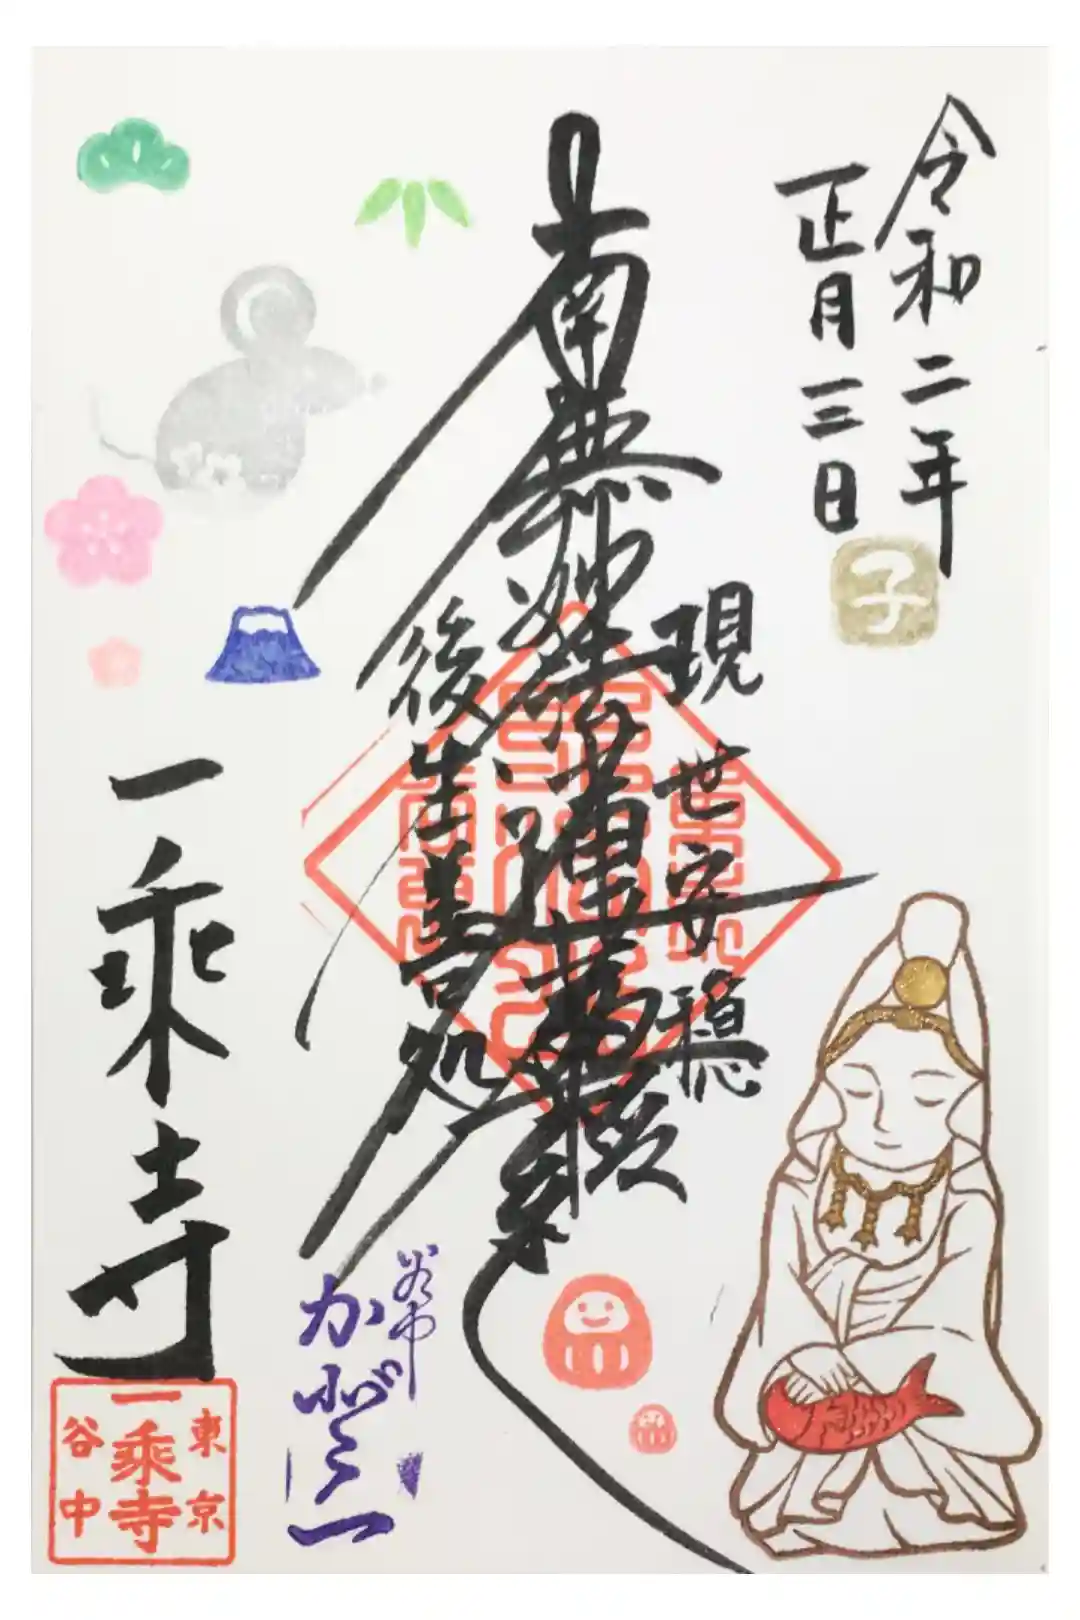 令和二年
正月三日
子
現世安穏
南無妙法蓮華経
後生善処
一乗寺
東京
一乗寺
谷中
谷中